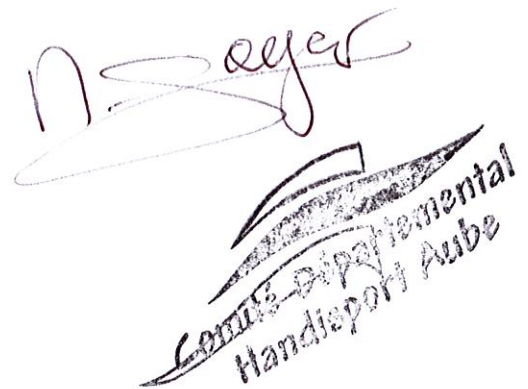 N. Sayer
Comité Départemental
Handisport Aube